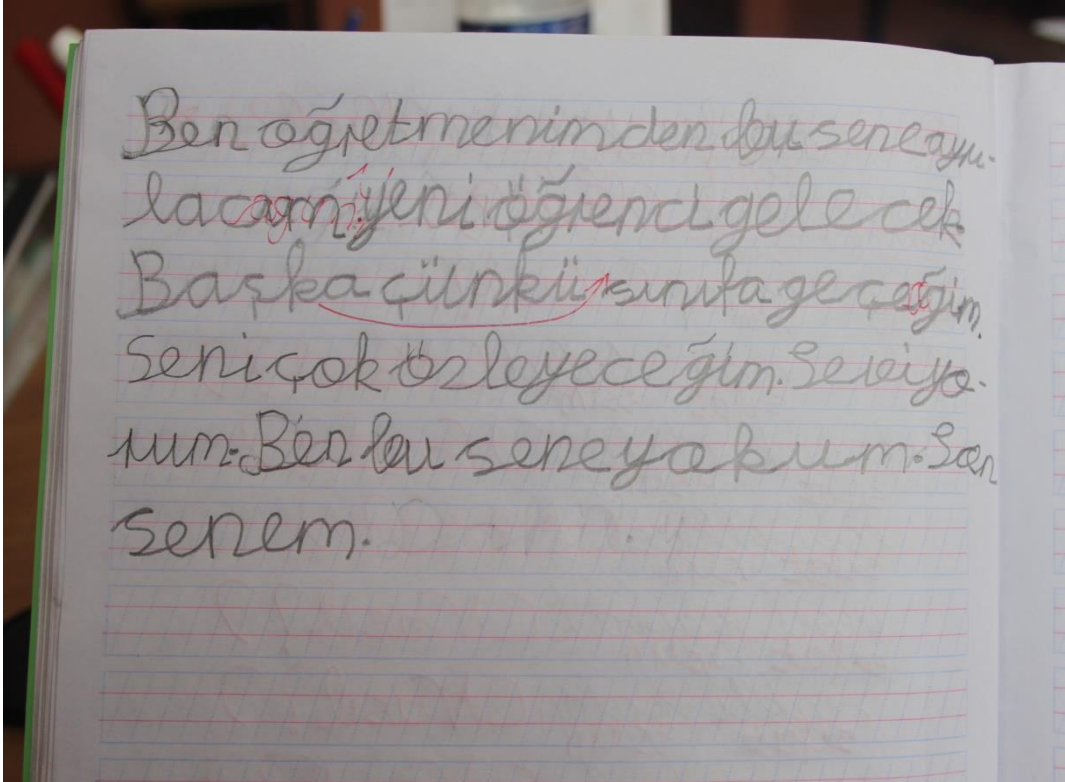 Ben öğretmenimden bu sene ayrı-
lacağım yeni öğrenci gelecek
Başka çünkü sınıfa geçeğim.
Seni çok özleyeceğim. Seviyo-
rum. Ben bu sene yokum. Son
senem.